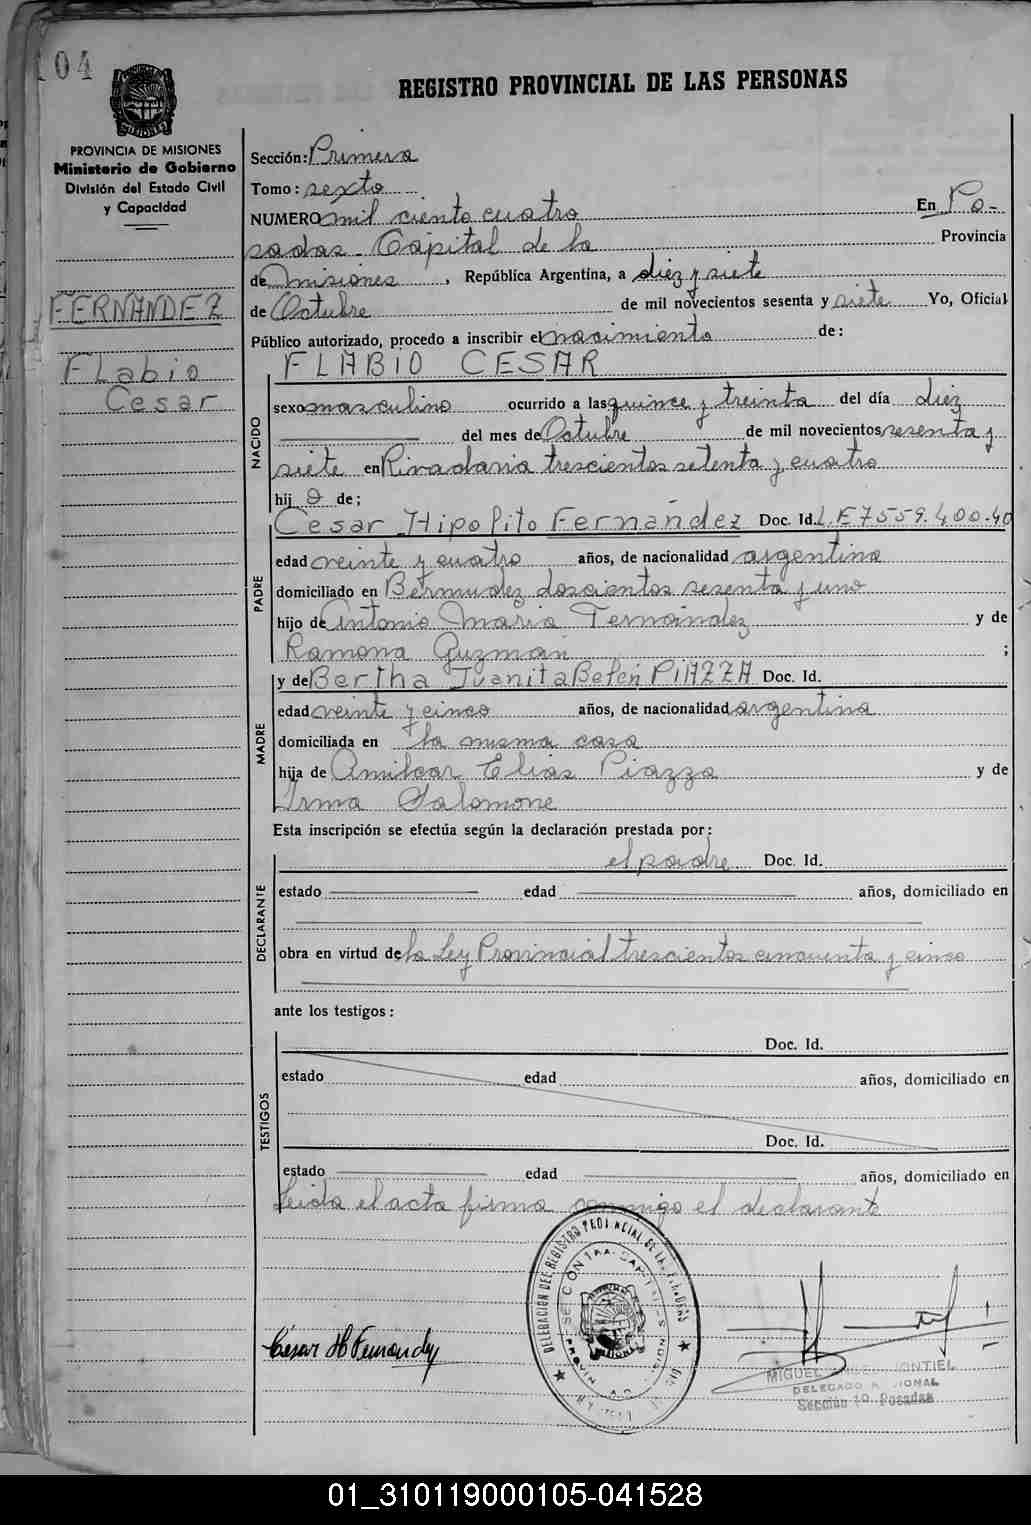 104
REGISTRO PROVINCIAL DE LAS PERSONAS
PROVINCIA DE MISIONES
Ministerio de Gobierno
División del Estado Civil
y Capacidad
FERNANDEZ
FLabio
Cesar
Sección: Primera
Tomo: sexto
NUMERO mil ciento cuatro En Po-
sadas Capital de la Provincia
de Misiones, República Argentina, a diez y siete
de Octubre de mil novecientos sesenta y siete Yo, Oficial
Público autorizado, procedo a inscribir el nacimiento de:
FLABIO CESAR
NACIDO
sexo masculino ocurrido a las quince y treinta del día diez
del mes de Octubre de mil novecientos sesenta y
siete en Rivadavia trescientos setenta y cuatro
hij o de;
Cesar Hipolito Fernández Doc. Id. L.E 7559.400.40
PADRE
edad veinte y cuatro años, de nacionalidad argentina
domiciliado en Bermudez doscientos sesenta y uno
hijo de Antonio Maria Fernández y de
Ramona Guzmán ;
y de Bertha Juanita Belén PiAZZA Doc. Id.
MADRE
edad veinte y cinco años, de nacionalidad argentina
domiciliada en la misma casa
hija de Amilcar Elias Piazza y de
Irma Salomone
Esta inscripción se efectúa según la declaración prestada por:
DECLARANTE
el padre Doc. Id.
estado edad años, domiciliado en
obra en virtud de la Ley Provincial trescientos cincuenta y cinco
ante los testigos:
TESTIGOS
Doc. Id.
estado edad años, domiciliado en
Doc. Id.
estado edad años, domiciliado en
Leida el acta firma conmigo el declarante
DELEGACIÓN DEL REGISTRO PROVINCIAL DE LAS PERSONAS
César H Fernandez
MIGUEL ANGEL MONTIEL
DELEGADO
Sección 1º Posadas
01_310119000105-041528